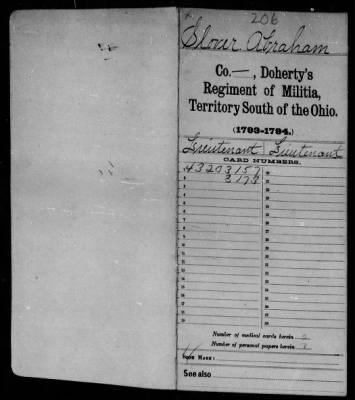 206
Slover Abraham
Co. —, Doherty's
Regiment of Militia,
Territory South of the Ohio.
(1793-1794.)
Lieutenant Lieutenant
CARD NUMBERS.
1 43203157
2 3178
Number of medical cards herein 0
Number of personal papers herein 0
BOOK MARK:
See also